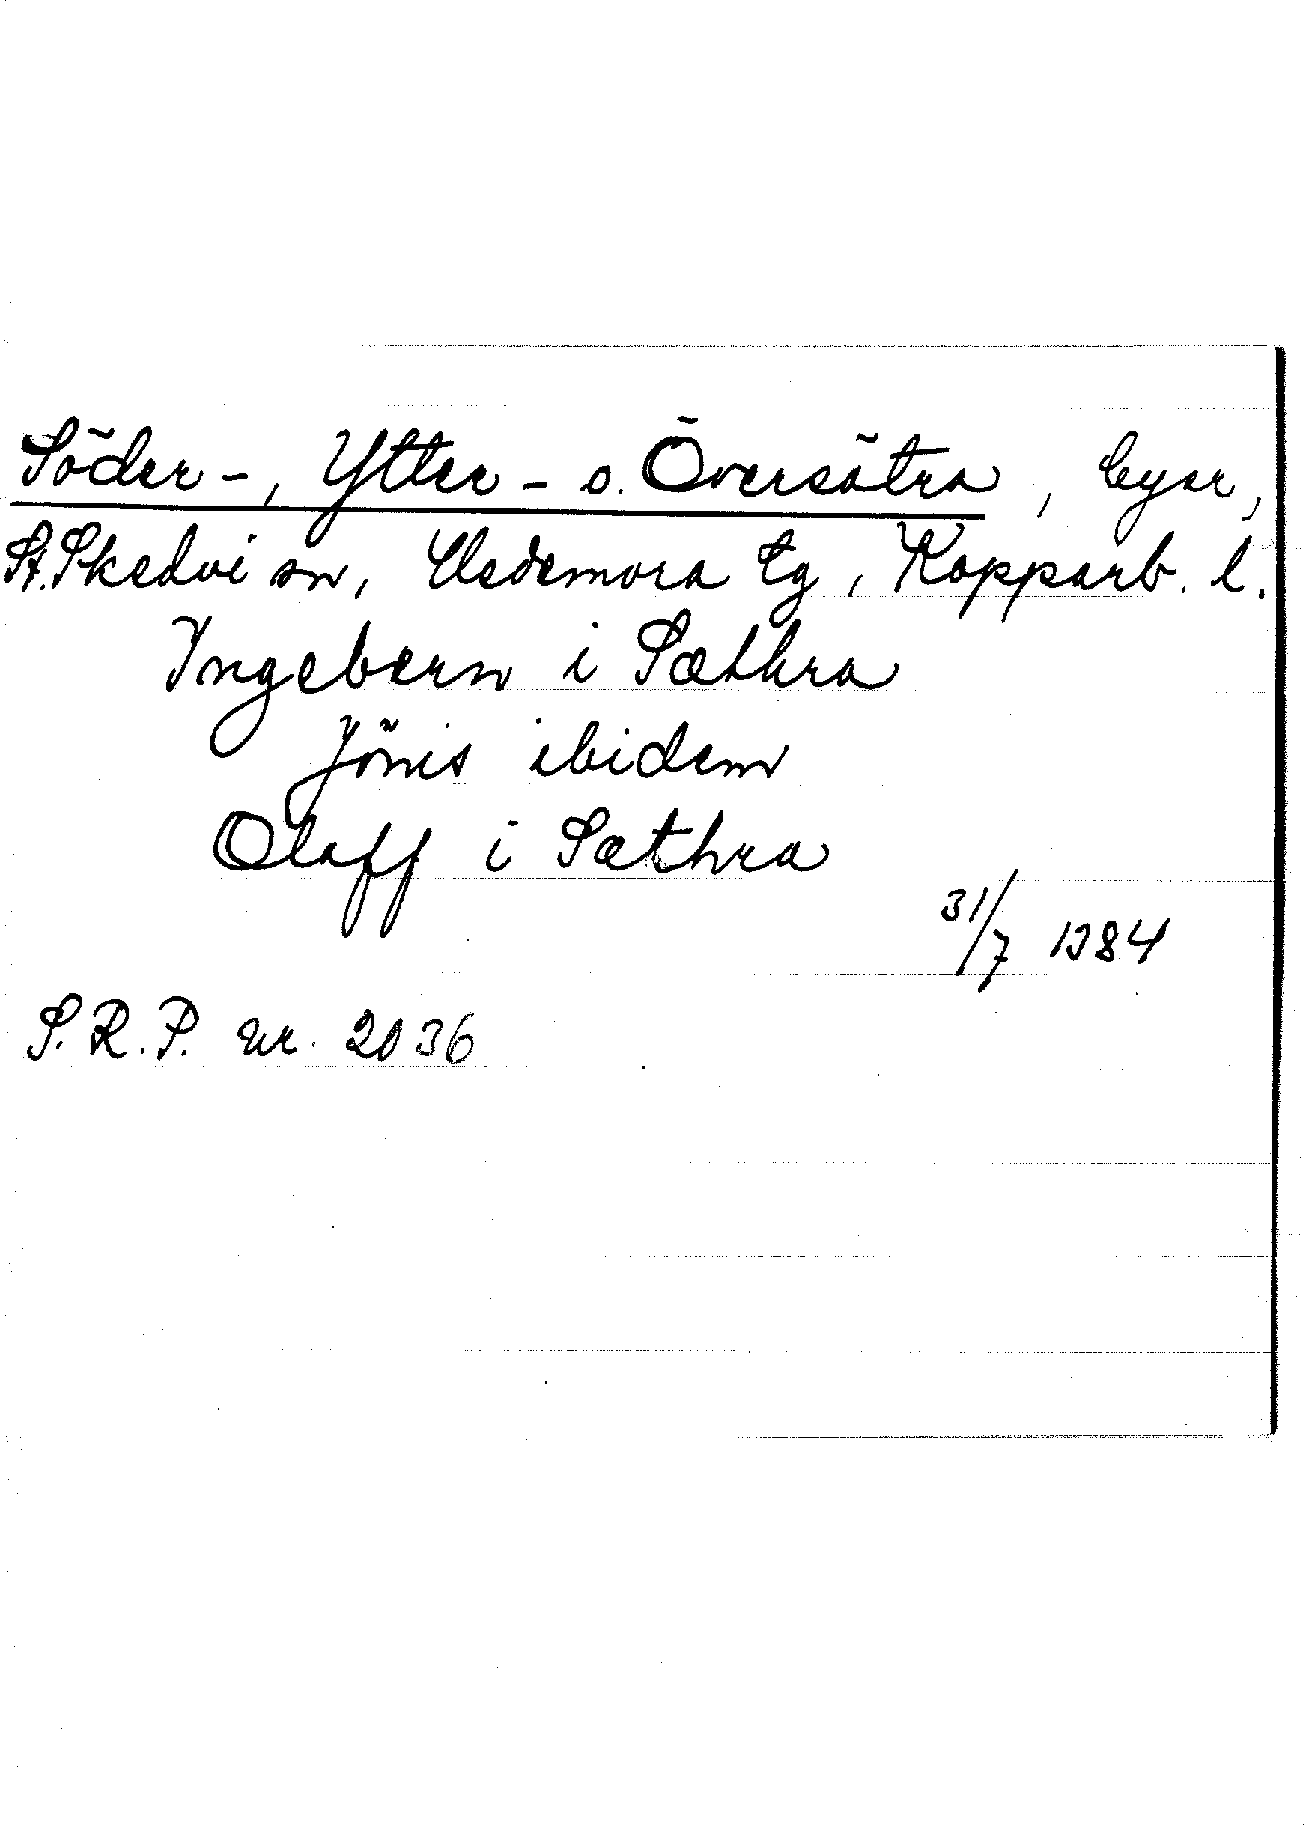 Söder-, Ytter- o. Översätra, byar,
St. Skedvi sn, Hedemora tg, Kopparb. l.
Ingebern i Sæthra
Jönis ibidem
Olaff i Sæthra
31/7 1384
S.R.P. nr. 2036